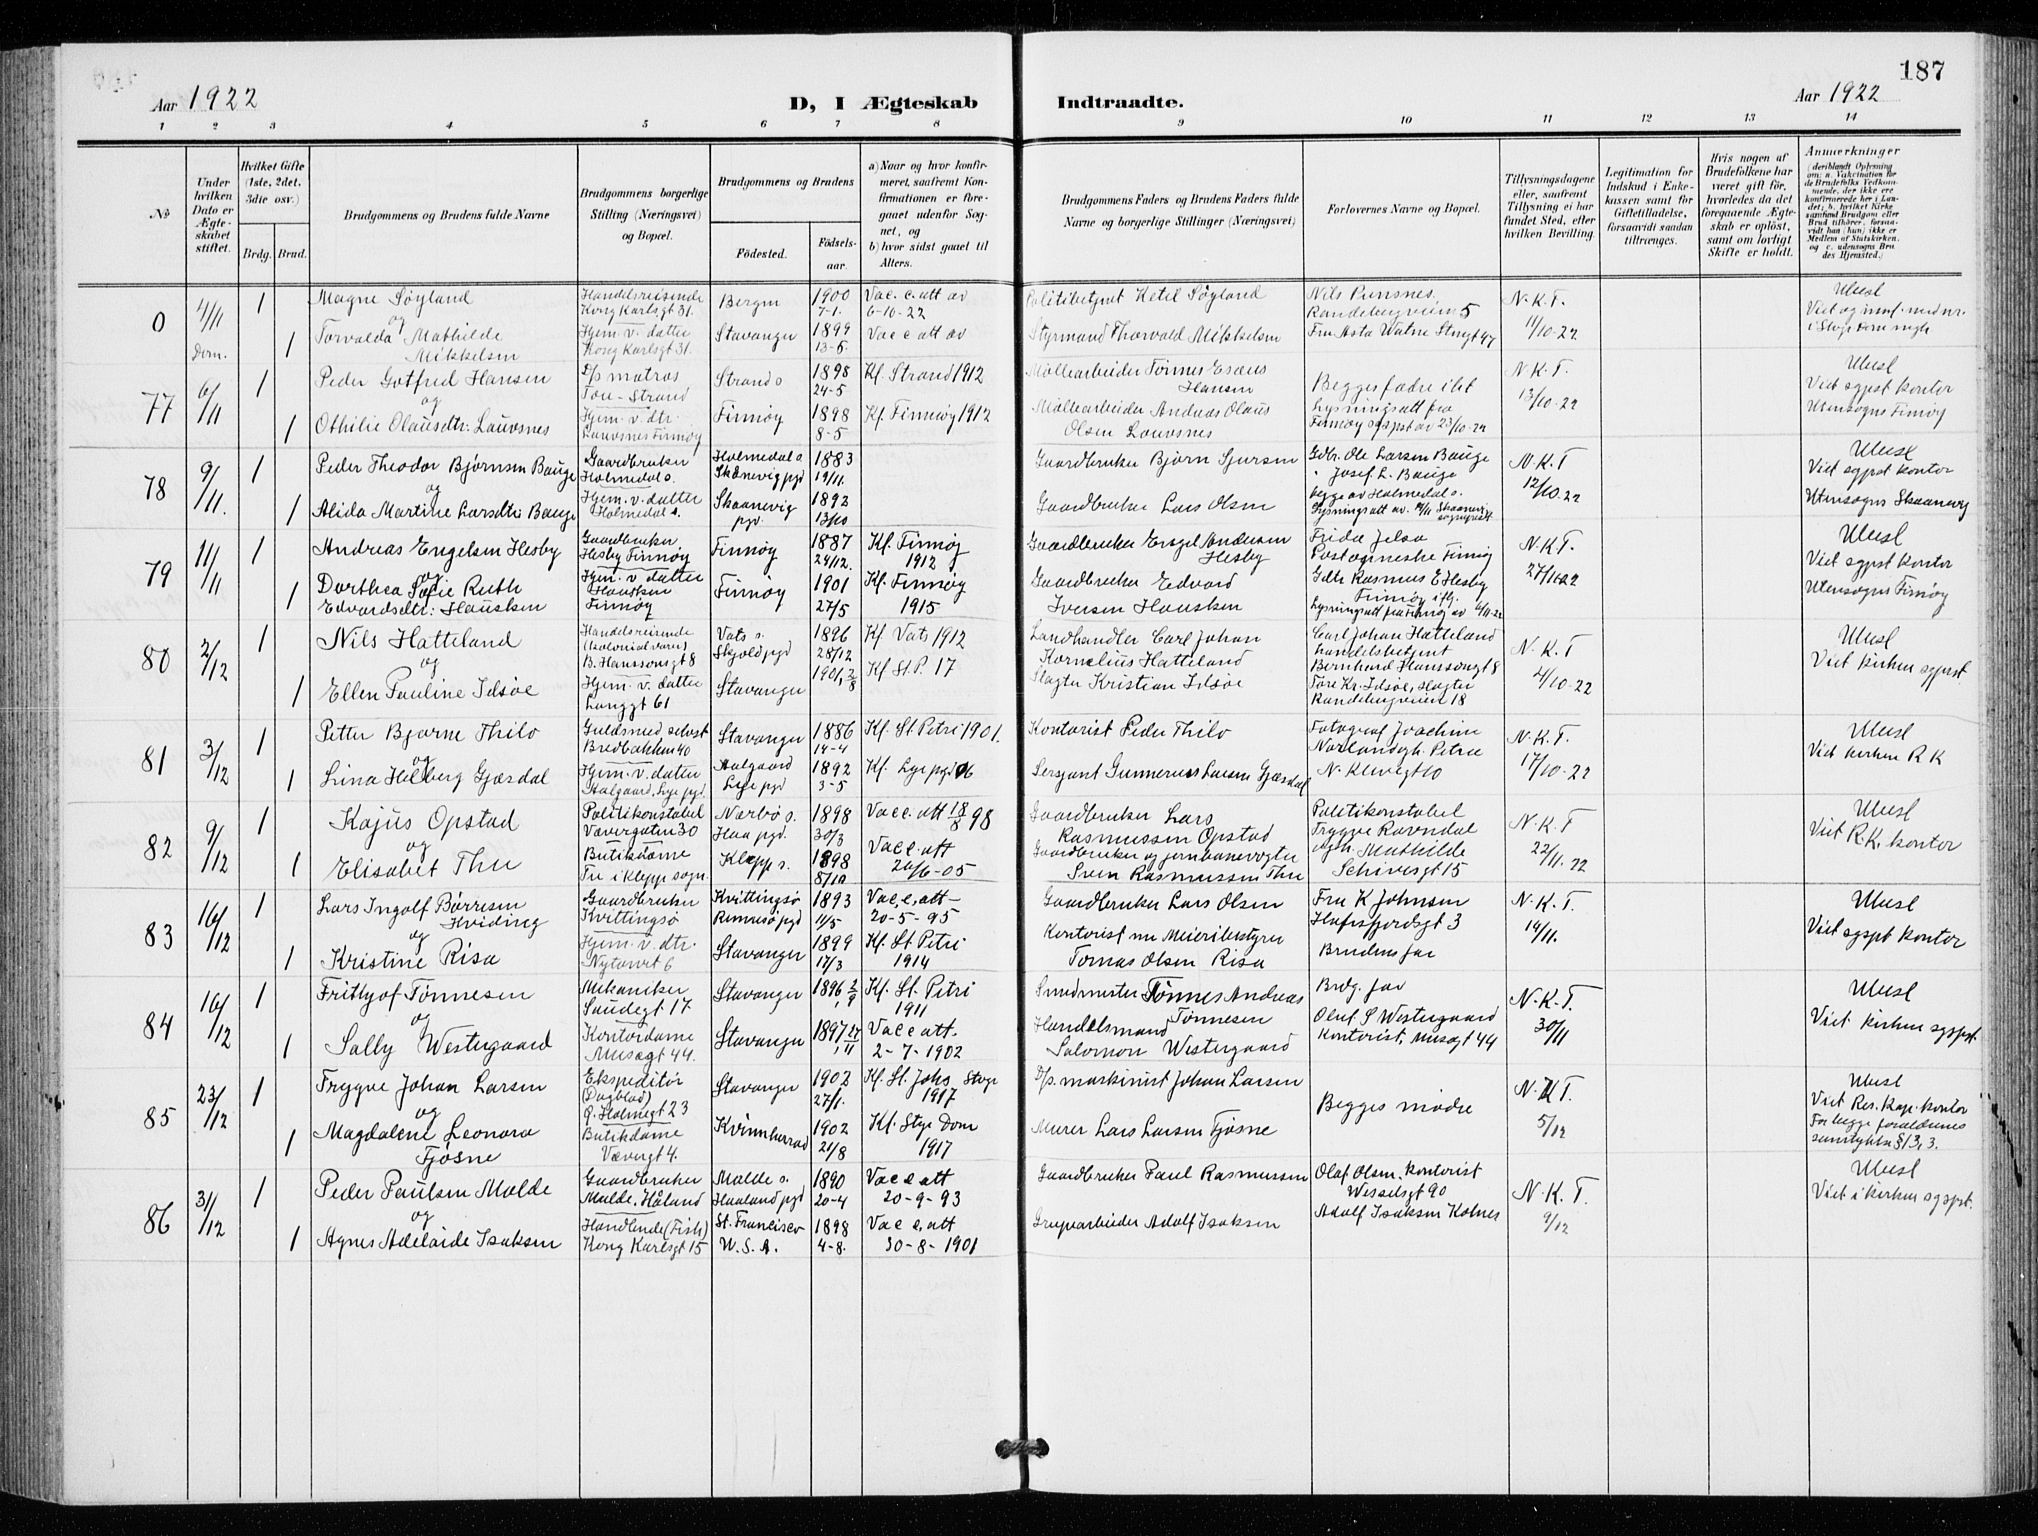 187
Aar 1922
D, I Ægteskab Indtraadte.
Aar 1922
1 2 3 4 5 6 7 8 9 10 11 12 13 14
No
Under hvilken Dato er Ægteskabet stiftet.
Hvilket Gifte (1ste, 2det, 3die osv.)
Brdg. Brud.
Brudgommens og Brudens fulde Navne
Brudgommens borgerlige Stilling (Næringsvei) og Bopæl.
Brudgommens og Brudens
Fødested. Fødselsaar.
a) Naar og hvor konfirmeret, saafremt Konfirmationen er foregaaet udenfor Sognet, og
b) hvor sidst gaaet til Alters.
Brudgommens Faders og Brudens Faders fulde Navne og borgerlige Stillinger (Næringsvei)
Forlovernes Navne og Bopæl.
Tillysningsdagene eller, saafremt Tillysning ei har fundet Sted, efter hvilken Bevilling.
Legitimation for Indskud i Enkekassen samt for Giftetilladelse, forsaavidt saadan tiltrænges.
Hvis nogen af Brudefolkene har været gift før, hvorledes da det foregaaende Ægteskab er opløst, samt om lovligt Skifte er holdt.
Anmerkninger
(deriblandt Oplysning om: a. Vakcination for de Brudefolks Vedkommende, der ikke ere konfirmerede her i Landet; b. hvilket Kirkesamfund Brudgom eller Brud tilhører, forsaavidt han (hun) ikke er Medlem af Statskirken, og c. udensogns Brudes Hjemsted.)
0
4/11
Dom.
1
Magne Søyland
og
1
Torvalda Mathilde
Mikkelsen
Handelsreisende
Kong Karlsgt 31.
Hjem. v. datter
Kong Karlsgt 31.
Bergen
1900
7-1.
Stavanger
1899
13-5.
Vac. c. att av
6-10-22
Vac c att av
Politibetjent Ketil Søyland
Styrmand Thorvald Mikkelsen
Randebergveien 5
Fru Asta Watne
N.K.T.
11/10-22
Ubesl
77
6/11
1
Peder Gotfred Hansen
og
1
Othilie Olausdtr. Lauvsnes
D/s matros
Tou - Strand
Hjem. v. dtr.
Lauvsnes Finnøy
Strand s
1898
24-5
Finnøy
1898
8-5
Kf. Strand 1912
Kf. Finnøy 1912
Møllearbeider Tønnes Esæus
Hansen
Møllearbeider Andreas Olaus
Olsen Lauvsnes
Begges fædre ifl
lysningsatt fra
Finnøy sgpst av 23/10-22
N.K.T.
13/10-22
Ubesl
Viet sgpst kontor
Utensogns Finnøy
78
9/11.
1
Peder Theodor Bjørnsen Bauge
og
1
Alida Martine Larsdtr. Bauge
Gaardbruker
Holmedal s.
Hjem. v. datter
Holmedal s.
Holmedal s
Skånevig pgd
1883
19/11.
Skaanevig
pgd.
1892
13/10
Gaardbruker Bjørn Sjursen
Gaardbruker Lars Olsen
Gdbr. Ole Larsen Bauge
" Josef L. Bauge
begge av Holmedal s.
N.K.T
12/10.22
Ubesl
Viet sgpst kontor
Utensogns Skaanevig
79
11/11
1
Andreas Engelsen Hesby
og
1
Dorthea Sofie Ruth
Edvardsdtr: Hausken
Gaardbruker
Hesby Finnøy
Hjem. v. datter
Hausken
Finnøy
Finnøy
1887
24/12.
Finnøy
1901
27/5
Kf. Finnøy
1912
Kf. Finnøy
1915
Gaardbruker Engel Andersen
Hesby
Gaardbruker Edvard
Iversen Hausken
Frida Jelsa
Gdbr Rasmus E Hesby
Finnøy ifg.
N.K.T.
27/10-22
Ubesl
Viet sgpst kontor
Utensogns Finnøy
80
2/12
1
Nils Hatteland
og
1
Ellen Pauline Idsøe
Handelsreisende
(kolonialvarer)
B. Hanssonsgt 8
Hjem. v. datter
Langgt 61
Vats s.
Skjold pgd
1896
28/12
Stavanger
1901, 2/8
Kf Vats 1912
Kf St. P. 17
Landhandler Carl Johan
Kornelius Hatteland
Slagter Kristian Idsøe
Carl Johan Hatteland
handelsbetjent
Bernhard Hanssonsgt 8
Tore Kr. Idsøe, slagter
Randebergveien 18
N.K.T
4/10-22
Ubesl
Viet kirken sgpst
81
3/12
1
Petter Bjarne Thilo
og
1
Lina Helberg Gjesdal
Guldsmed selvst
Bredbakken 40
Hjem. v. datter
Aalgaard, Lye pgd.
Stavanger
1886
14-4
Aalgaard
Lye pgd
1892
3-5
Kf. St. Petri 1901.
Kf. Lye pgd 06
Kontorist Peder Thilo
Sersjant Gunnerius Larsen Gjesdal
Fotograf Joachim
N. Klevegt 10
N.K.T.
17/10-22
Ubesl
Viet kirken R K
82
9/12
1
Kajus Opstad
og
1
Elisabet Thu
Politikonstabel
Vævergaten 30
Butikdame
Tu i Klepp sogn.
Nærbø s.
Haa pgd.
1898
30/3
Klepp s.
1898
8/10
Vac c. att 18/8 98
Vac c. att
26/6-05
Gaardbruker Lars
Rasmussen Opstad
Gaardbruker og jernbanevogter
Sven Rasmussen Thu
Politikonstabel
Trygve Ravndal
og h. Mathilde
Schivesgt 15
N.K.T
22/11.22
Ubesl
Viet R.K. kontor
83
16/12
1
Lars Ingolf Børresen
Kviding
og
1
Kristine Risa
Gaardbruker
Kvittingsø
Hjem. v. dtr.
Nytorvet 6
Kvittingsø
Rennesø pgd
1893
11/5
Stavanger
1899
17/3
Vac. c. att
20-5-95
Kf. St Petri
1914
Gaardbruker Lars Olsen
Kontorist nu Meieribestyrer
Tomas Olsen Risa
Fru K Johnsen
Hafrsfjordsgt 3
Brudens far
N.K.T.
14/11.
Ubesl
Viet sgpst kontor
84
16/12
1
Frithjof Tønnesen
og
1
Sally Westergaard
Mekaniker
Saudegt 17.
Kontordame
Musægt 44.
Stavanger
1896 2/9
Stavanger
1897 27/11
Kf. St. Petri
1911
Vac c att.
2-7-1902
Smedmester Tønnes Andreas
Tønnesen
Handelsmand
Salomon Westergaard
Brdg. far
Oluf S Westergaard
Kontorist, Musægt 44
N.K.T.
30/11
Ubesl
Viet kirken sgpst.
85
23/12
1
Trygve Johan Larsen
og
1
Magdalene Leonora
Tjøsne
Ekspeditør
(Dagblad)
Q. Holmegt 23
Butikdame
Vævergt 4.
Stavanger
1902
27/1.
Kvinnherrad
1902
21/8
Kf. St. Johs Stvgr
1917
Kf. Stvgr Dom
1917
D/s. maskinist Johan Larsen
Murer Lars Larsen Tjøsne
Begges mødre
N.K.T.
5/12
Ubesl
Viet Res. Kap. kontor
For begge forældrenes
samtykke §13, 3.
86
31/12
1
Peder Paulsen Malde
og
1
Agnes Adelaide Isaksen
Gaardbruker
Malde. Håland
Handlende (Fisk)
Kong Karlsgt 15
Malde s.
Haaland pgd
1890
20-4
St. Francisco
U.S.A.
1898
4-8.
Vac c att
20-9-93
Vac c. att
30-8-1901
Gaardbruker Paul Rasmussen
Grupearbeider Adolf Isaksen
Olaf Olsen, kontorist
Wesselsgt 90
Adolf Isaksen Kolnes
N.K.T.
9/12
Ubesl
Viet i kirken sgpst.